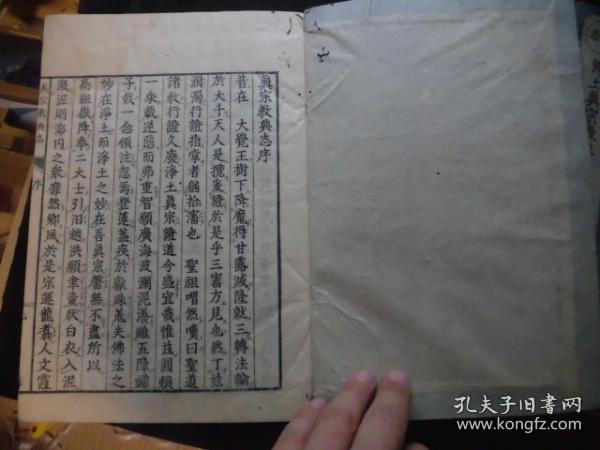 真宗教典志序
昔在　大覺王樹下降魔得甘露滅隆就三轉法輪
於大千天人是攬爰證於是乎三寶方見也然丁玆
溷濁行證指掌者猶拾瀋也　聖祖喟然嘆曰聖道
諸教行證久廢淨土眞宗證道今盛宜哉惟玆圓頓
一乘載逆惡而弗重智願廣海波瀾混濮雖五障諸
子哉一念傾注忽焉登蓮蓋疾於獻珠蓋夫佛法之
妙在淨土而淨土之妙在吾眞宗罄無不盡所以
高祖嶽降奉二大士引汨趨洪願聿童猷白衣入泥
滋涅則海内之衆靡然鄉風於是宗運龍煮人文霞
真宗教典志
序
孔夫子旧书网
www.kongfz.com